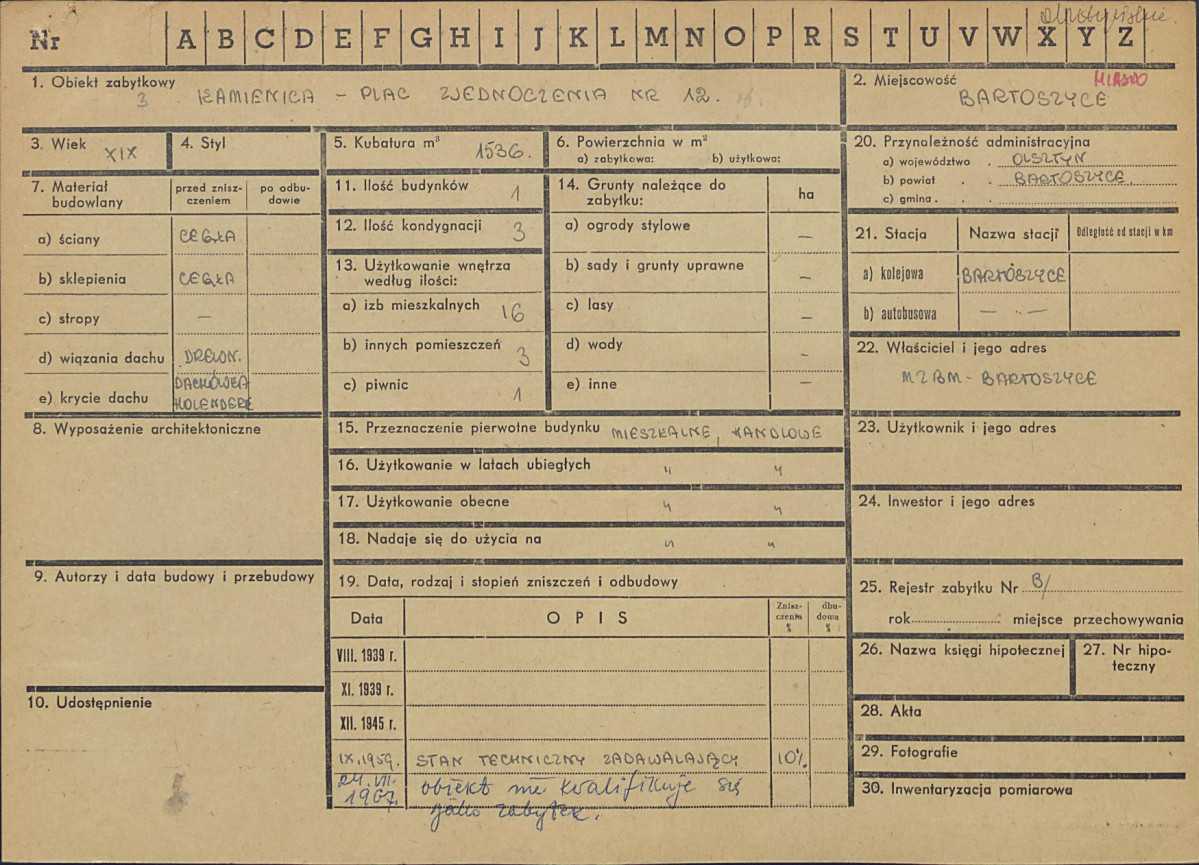 Nr A B C D E F G H I J K L M N O P R S T U V W X Y Z
1. Obiekt zabytkowy
3 KAMIENICA – PLAC ZJEDNOCZENIA NR 12.
2. Miejscowość MIASTO
BARTOSZYCE
3. Wiek XIX
4. Styl
5. Kubatura m³ 1536.
6. Powierzchnia w m²
a) zabytkowa: b) użytkowa:
7. Materiał budowlany
przed zniszczeniem
po odbudowie
a) ściany CEGŁA
b) sklepienia CEGŁA
c) stropy –
d) wiązania dachu DREWN.
e) krycie dachu DACHÓWKA HOLENDERK
8. Wyposażenie architektoniczne
9. Autorzy i data budowy i przebudowy
10. Udostępnienie
11. Ilość budynków 1
12. Ilość kondygnacji 3
13. Użytkowanie wnętrza
według ilości:
a) izb mieszkalnych 16
b) innych pomieszczeń 3
c) piwnic 1
14. Grunty należące do
zabytku:
ha
a) ogrody stylowe –
b) sady i grunty uprawne –
c) lasy –
d) wody –
e) inne –
15. Przeznaczenie pierwotne budynku MIESZKALNE, HANDLOWE
16. Użytkowanie w latach ubiegłych " "
17. Użytkowanie obecne " "
18. Nadaje się do użycia na " "
19. Data, rodzaj i stopień zniszczeń i odbudowy
Data OPIS Zniszczenia % dbudowa %
VIII. 1939 r.
XI. 1939 r.
XII. 1945 r.
IX.1959. STAN TECHNICZNY ZADAWALAJĄCY 10%
24.VII. 1967. obiekt nie kwalifikuje się
jako zabytek.
20. Przynależność administracyjna
a) województwo . OLSZTYN
b) powiat . . BARTOSZYCE.
c) gmina . . .
21. Stacja Nazwa stacji Odległość od stacji w km
a) kolejowa BARTOSZYCE
b) autobusowa – . –
22. Właściciel i jego adres
MZBM – BARTOSZYCE
23. Użytkownik i jego adres
24. Inwestor i jego adres
25. Rejestr zabytku Nr B/
rok miejsce przechowywania
26. Nazwa księgi hipotecznej
27. Nr hipoteczny
28. Akta
29. Fotografie
30. Inwentaryzacja pomiarowa